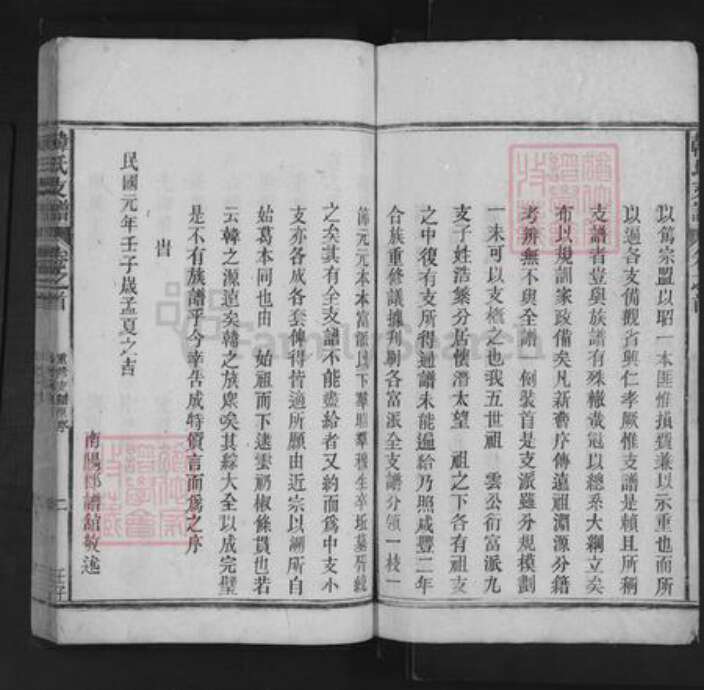 以篤宗盟以昭一本匪惟損費兼以示重也而所
以過各支備觀省興仁孝厥惟支譜是賴且所稱
支譜者豈與族譜有殊轍哉冠以總系大綱立矣
布以規訓家政備矣凡新舊序傳遠祖淵源分籍
考辨無不與全譜 例裝首是支派雖分規模劃
一未可以支 之也我五世祖 雲公衍富派九
支子姓浩繁分居懷潛太望 祖之下各有祖支
之中復有支所得通譜未能遍給乃照咸豐二年
合族重修議據刋刷各富派全支譜分領一枝一
節元元本本富韻以下羣昭羣穆生卒坵墓厝
之矣其有全支譜不能盡給者又約而為中支小
支亦各成各套俾得皆適所願由近宗以溯所自
始葛本同也由 始祖而下逮雲礽椒條貫也若
云韓之源遠矣韓之族衆矣其綜大全以成完璧
是不有族譜乎今幸告成特價言而為之序
旹
民國元年壬子歲孟夏之吉
南陽郡譜館敬述
韓氏支譜 卷之首
二 壬子